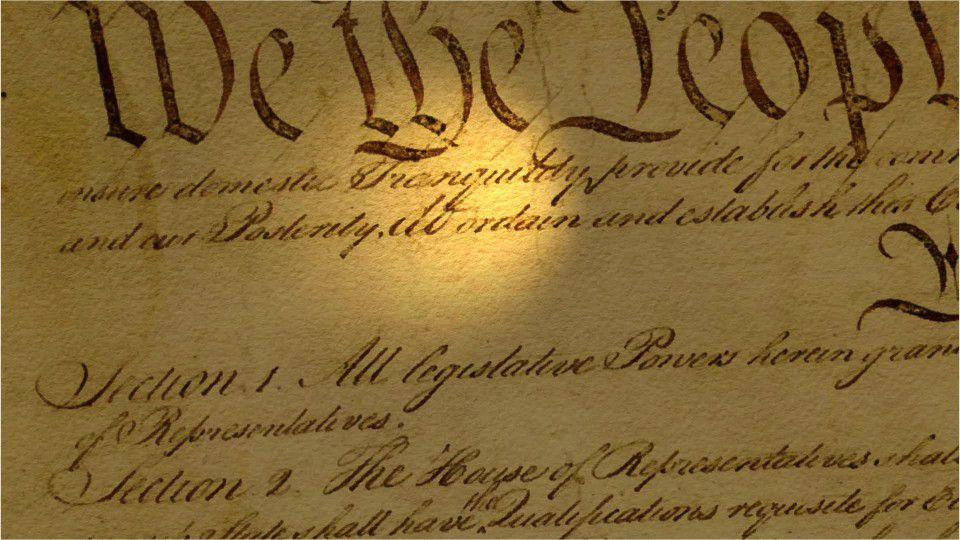 We the People
insure domestic Tranquility, provide for the comm
and our Posterity, do ordain and establish this C
Section. 1. All legislative Powers herein gran
of Representatives.
Section. 2. The House of Representatives shall
State shall have the Qualifications requisite for